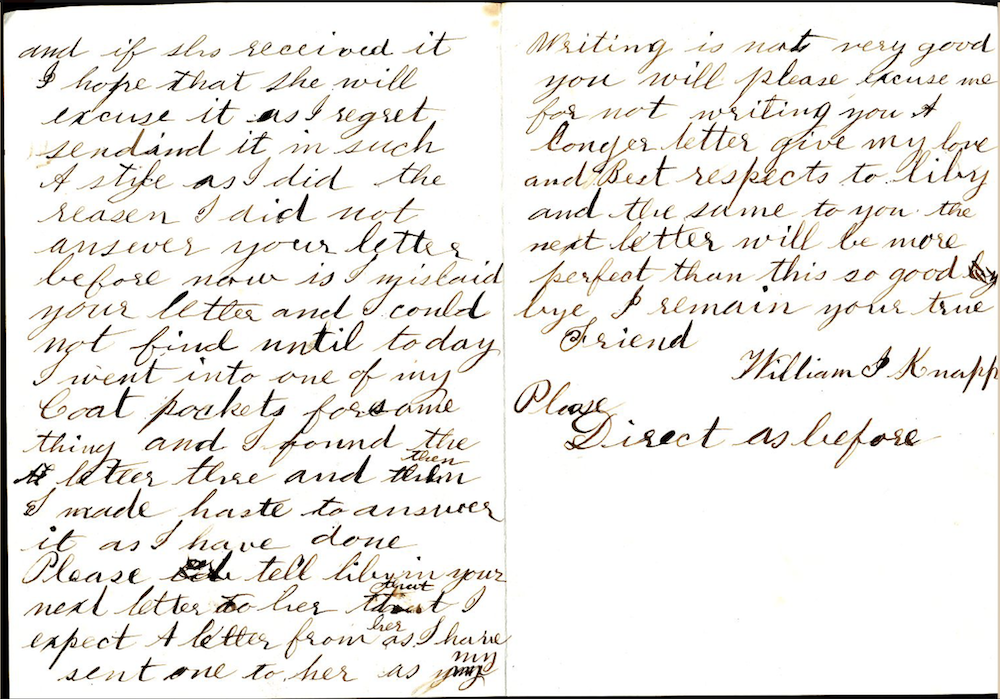 and if she received it
I hope that she will
excuse it as I regret
sendind it in such
A stile as I did the
reasen I did not
answer your letter
before now is I mislaid
your letter and I could
not find until today
I went into one of my
Coat pockets for some
thing and I found the
letter there and then
I made haste to answer
it as I have done
Please tell liby in your
next letter to her that I
expect A letter from her as I have
sent one to her as my
Writing is not very good
you will please excuse me
for not writing you A
longer letter give my love
and Best respects to liby
and the same to you the
next letter will be more
perfect than this so good
bye I remain your true
Friend
William I Knapp
Please
Direct as before